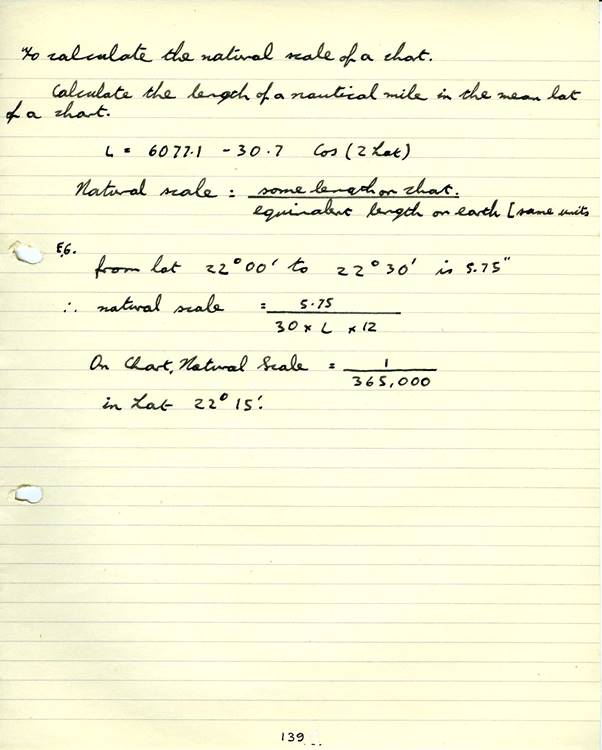 To calculate the natural scale of a chart.
Calculate the length of a nautical mile in the mean lat
of a chart.
L = 6077.1 - 30.7 Cos (2 Lat)
Natural scale = some length on chart.
equivalent length on earth [same units
E.G.
from lat 22° 00' to 22° 30' is 5.75"
∴ natural scale = 5.75
30 × L × 12
On Chart, Natural Scale = 1
365,000
in Lat 22° 15'.
139